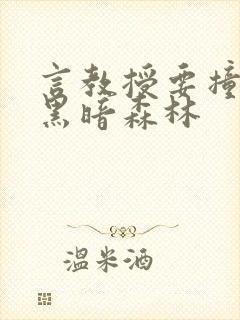 言教授要撞
黑暗森林
温米酒